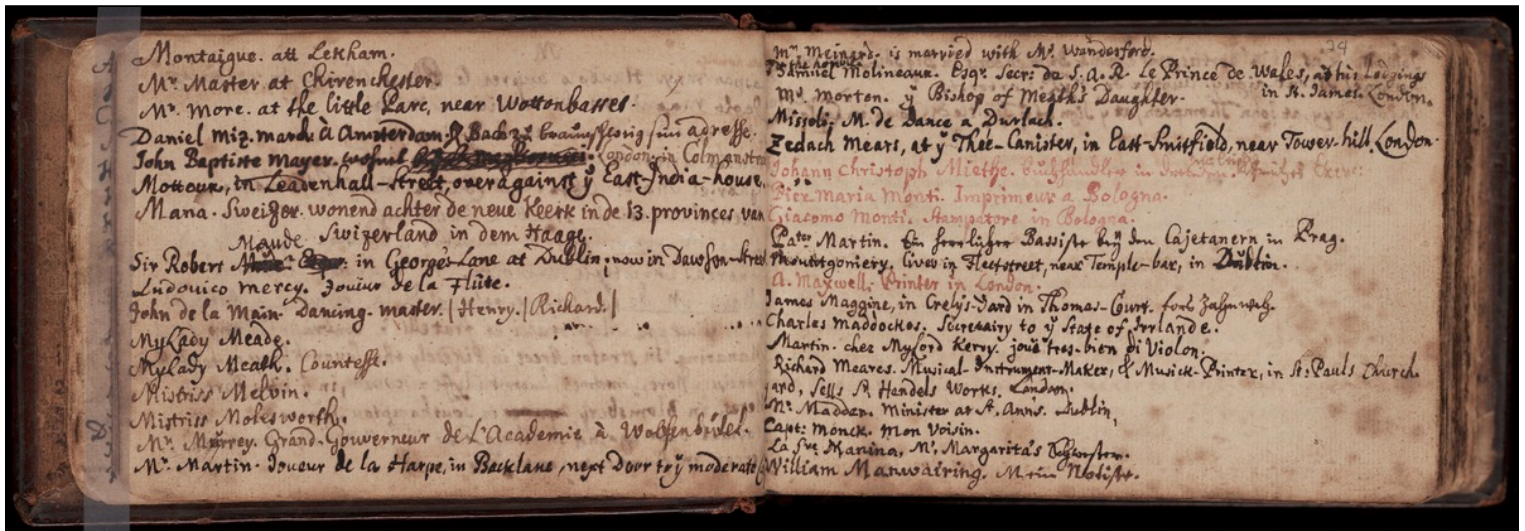 Montaigue. att Lekham.
Mr. Master at Chirenchester.
Mr. More. at the little Parc, near Wottonbasset.
Daniel Miz. march. à Amsterdam. Back zu braunschweig sein adresse.
John Baptiste Mayer. wohnt London. in Colmanstra
Motteux, in Leadenhall-Street, over against ÿ East-India-house.
Mana. Sweizer. wonend achter de neue Keerk in de 13. provinces van
Swizerland in dem Haage.
Maude
Sir Robert in George's-Lane at Dublin, now in Dawson-Street
Ludovico Mercy. Joueur de la Flûte.
John de la Main. Dancing-master. | Henry. | Richard. |
MyLady Meade.
MyLady Meath. Countesse.
Mistriss Melvin.
Mistriss Molesworth.
Mr. Murrey. Grand-Gouverneur de L'Academie à Wolfenbüttel.
Mr. Martin. Joueur de la Harpe, in Backlane, next Door to ÿ moderate
24
Mrs. Meinard. is married with Mr. Wanderford.
the honble
Samuel Molineaux. Esqr. Secr: da S. A. R. Le Prince de Wales, at his Lodgings
in St. James. London.
Ms. Morton. ÿ Bishop of Meath's Daughter.
Missoli. M. de Dance a Durlach.
Zedach Mears, at ÿ Thée-Canister, in East-Smitfield, near Tower-hill. London.
Johann Christoph Miethe. buchhändler in dresden.
Pier Maria Monti. Imprimeur a Bologna.
Giacomo Monti. Stampatore in Bologna.
Pater Martin. Ein herrlicher Bassiste bey den Cajetanern in Prag.
Mountgomery. lives in Fleetstreet, near Temple-bar, in Dublin.
A. Maxwell. Printer in London.
James Maggine, in Crelys-Yard in Thomas-Court. fors Zahnweh.
Charles Maddockes. Secretairy to ÿ State of Irrlande.
Martin. chez Mylord Kerry. joue tres-bien di Violon.
Richard Meares. Musical-Instrument-Maker, & Musick-Printer, in St: Pauls Church
yard, sells Hendels Works. London.
Mr. Madden. Minister at St. Anns. Dublin,
Capt: Monck. Mon Voisin.
La Sra Manina, Ms. Margarita's Schwester.
William Manwairing. Mein Notiste.